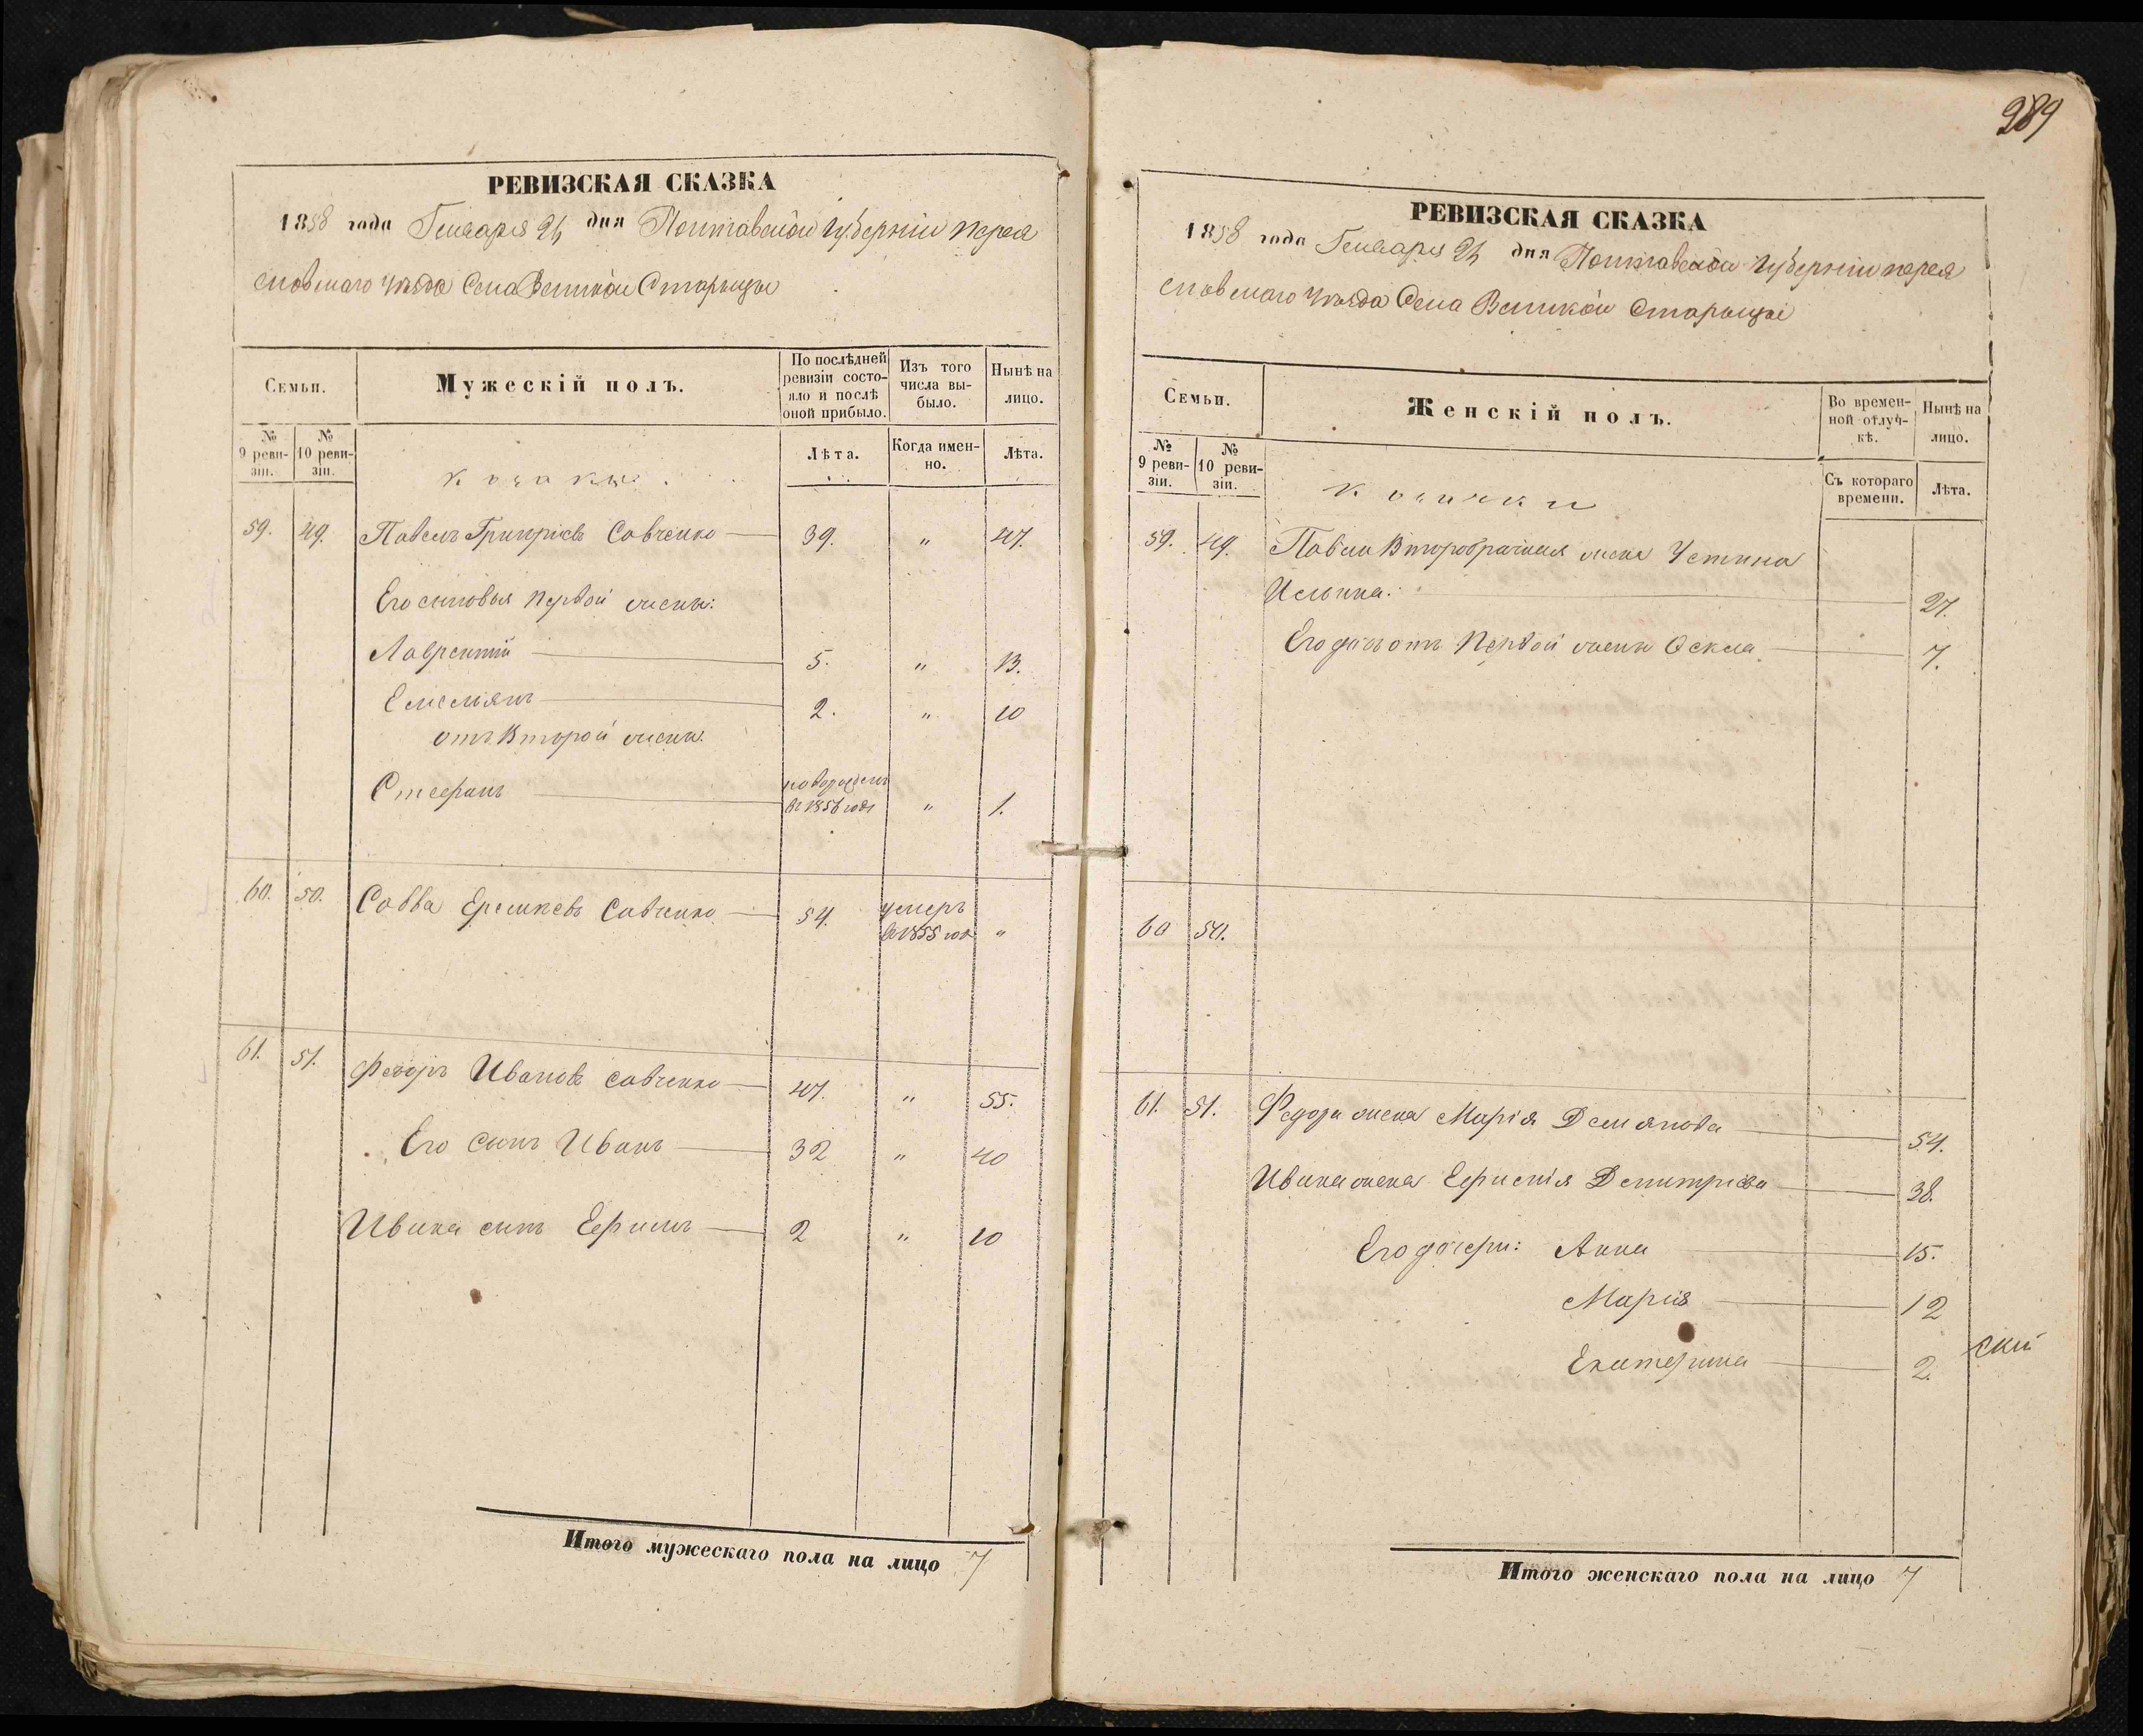 289
РЕВИЗСКАЯ СКАЗКА
1858 года Генваря 21 дня Полтавской Губерніи Перея
словскаго уѣзда Села Великой Старыцы
Семьи.
Мужескій полъ.
По послѣдней ревизіи состояло и послѣ оной прибыло.
Изъ того числа выбыло.
Нынѣ на лицо.
№ 9 ревизіи.
№ 10 ревизіи.
козаки.
Лѣта.
Когда именно.
Лѣта.
59. 49. Павелъ Григоріевъ Савченко 39. " 47.
Его сыновья первой жены:
Лаврентій 5. " 13.
Емельянъ 2. " 10
отъ Второй жены.
Стефанъ новорожденъ
въ 1856 годѣ " 1.
60. 50. Савва Савченко 54. умеръ
въ 1855 год "
61. 51. Федоръ Ивановъ Савченко 47. " 55.
Его сынъ Иванъ 32 " 40
Ивана сынъ Ефимъ 2 " 10
Итого мужескаго пола на лицо 7
РЕВИЗСКАЯ СКАЗКА
1858 года Генваря 21 дня Полтавской Губерніи Перея
словскаго уѣзда Села Великой Старыцы
Семьи.
Женскій полъ.
Во временной отлучкѣ.
Нынѣ на лицо.
№ 9 ревизіи.
№ 10 ревизіи.
козачки
Съ котораго времени.
Лѣта.
59. 49. Павла Второбрачная жена Устина
Ильина. 27.
Его дочь отъ Первой жены 7.
60 50.
61. 51. Федора жена Марія Демянова 54.
Ивана жена Ефимія Демитріева 38.
Его дочери: Анна 15.
Марія 12
Екатерина 2.
ский
Итого женскаго пола на лицо 7